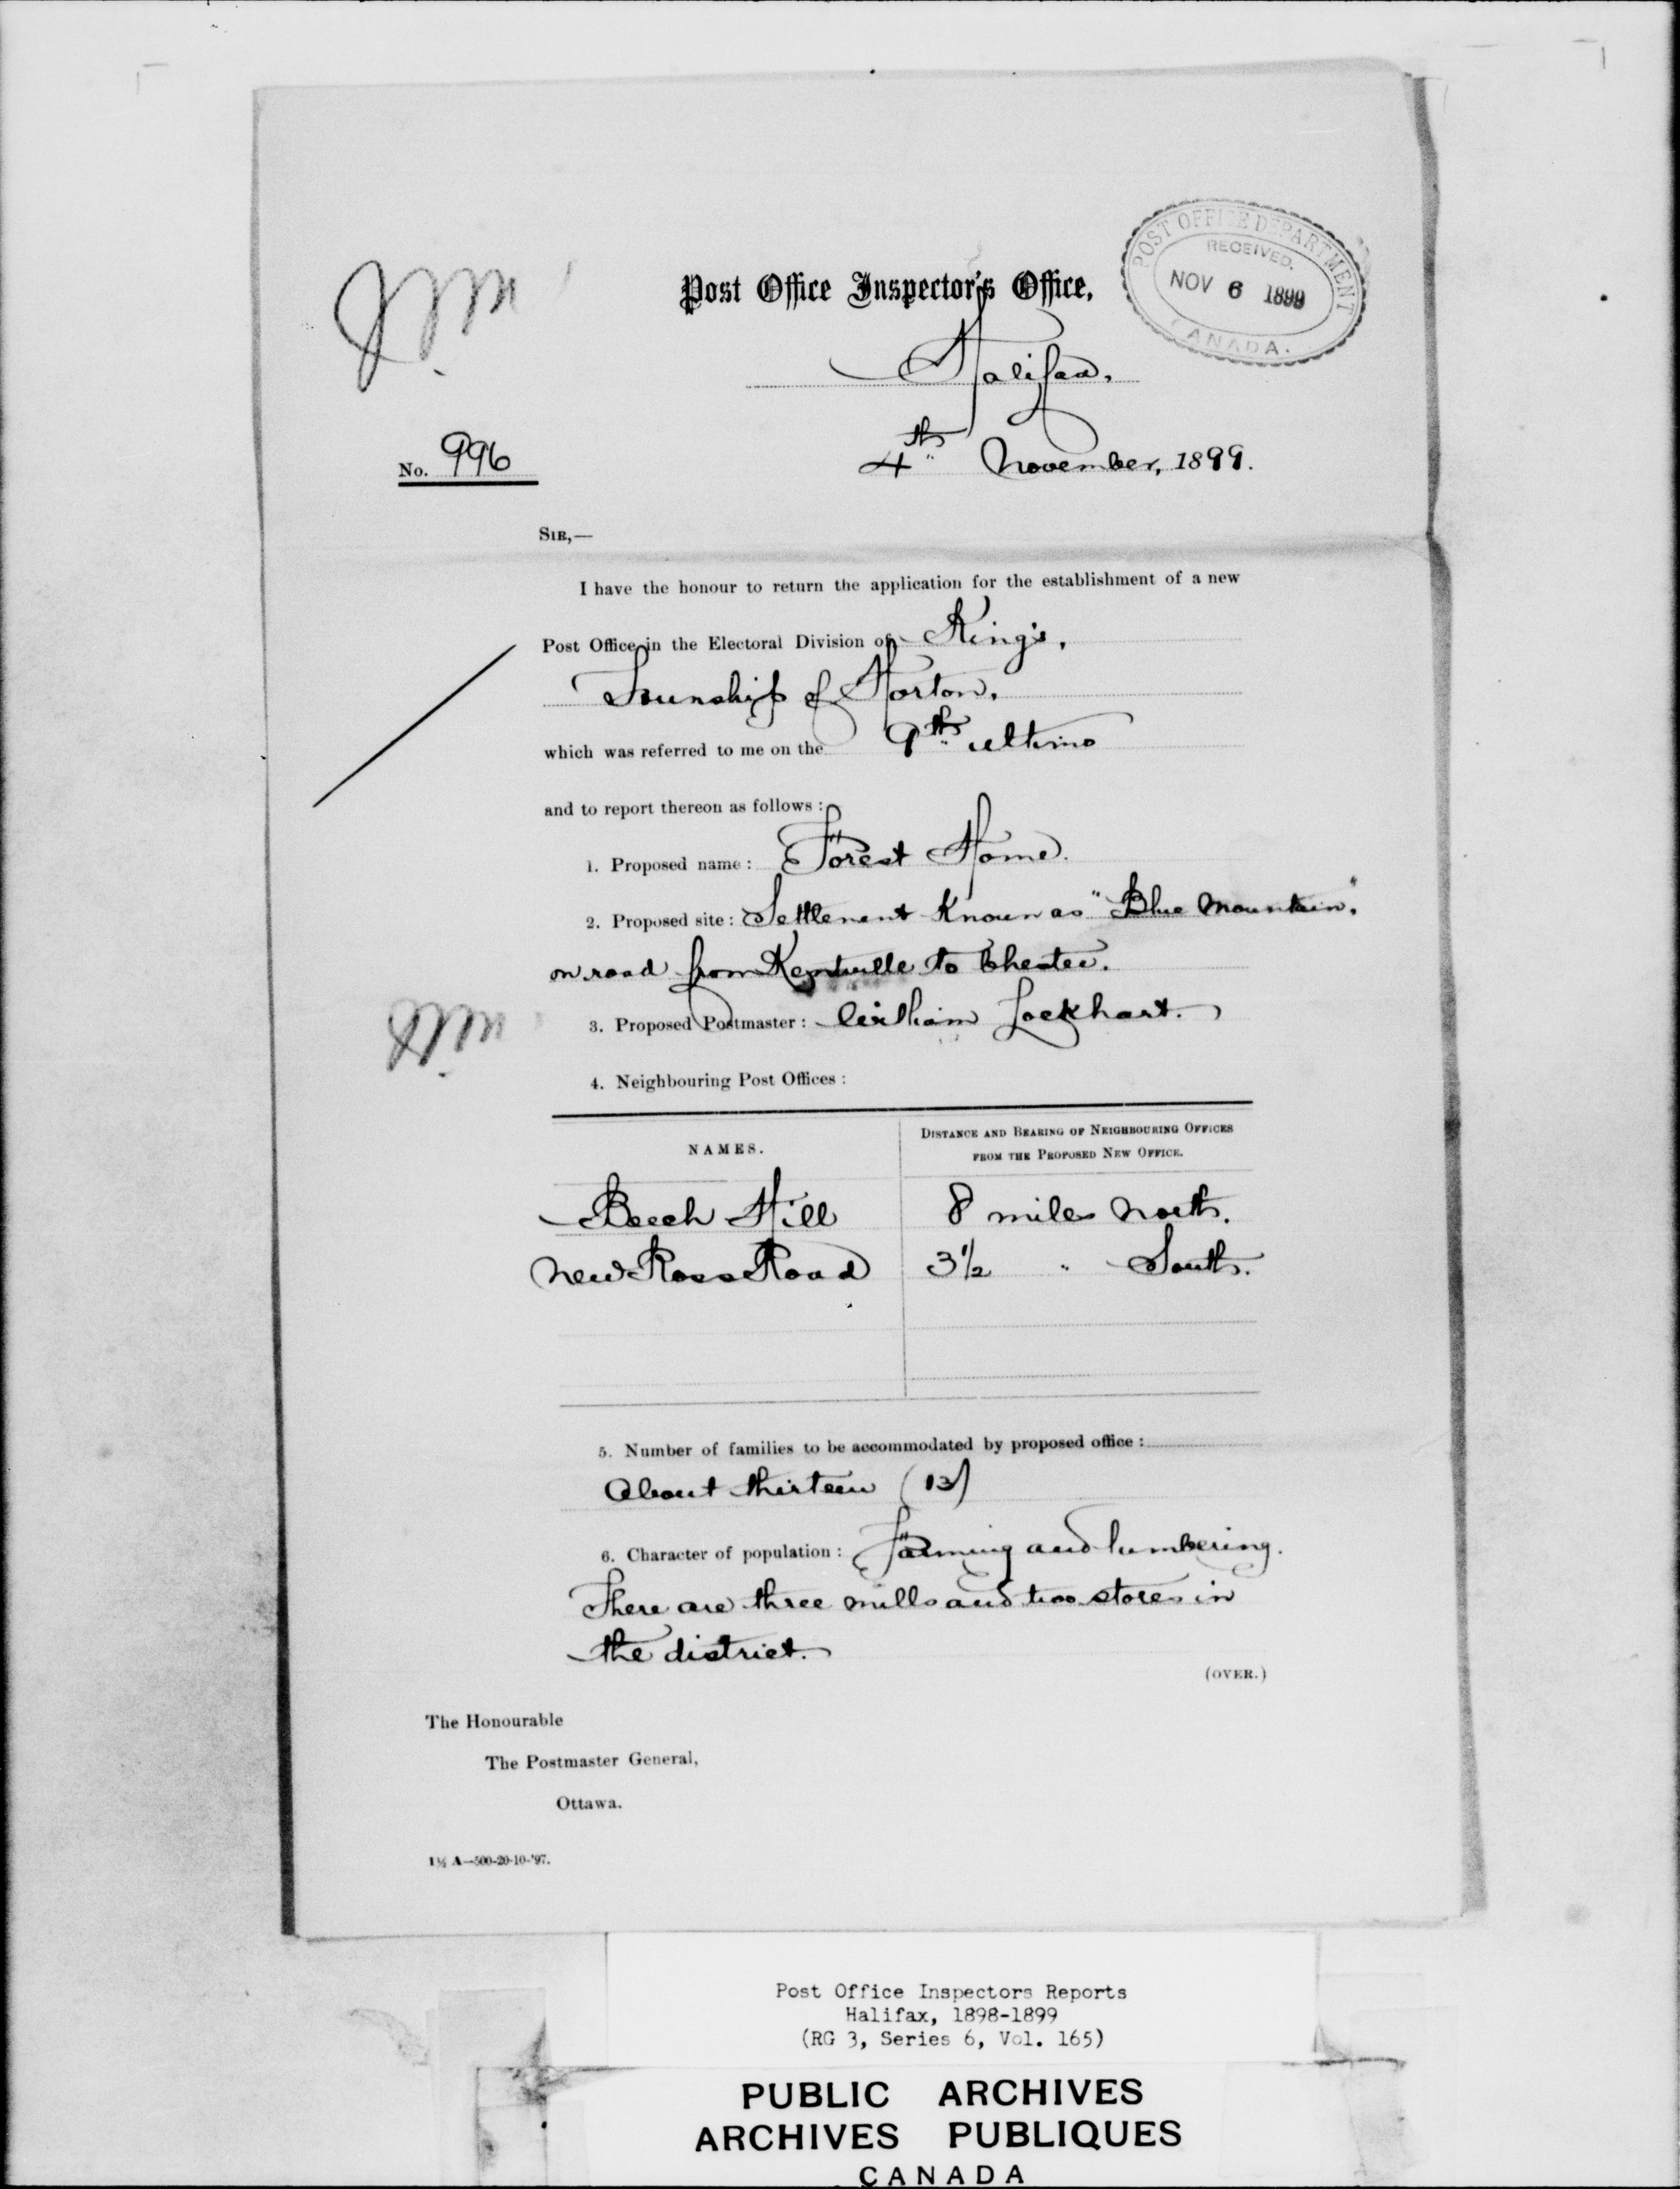 Post Office Inspector's Office,
POST OFFICE DEPARTMENT
RECEIVED.
NOV 6 1899
CANADA.
Halifax,
No. 996
4th November, 1899.
SIR,—
I have the honour to return the application for the establishment of a new
Post Office in the Electoral Division of King's,
Township of Horton.
which was referred to me on the 9th ultimo
and to report thereon as follows:
1. Proposed name: Forest Home.
2. Proposed site: Settlement Known as "Blue Mountain,"
on road from Kentville to Chester.
3. Proposed Postmaster: William Lockhart.
4. Neighbouring Post Offices:
NAMES.
DISTANCE AND BEARING OF NEIGHBOURING OFFICES
FROM THE PROPOSED NEW OFFICE.
Beech Hill 8 miles North.
New Ross Road 3½ " South.
5. Number of families to be accommodated by proposed office:
About thirteen (13)
6. Character of population: Farming and lumbering.
There are three mills and two stores in
the district.
(OVER.)
The Honourable
The Postmaster General,
Ottawa.
1½ A—500-20-10-'97.
Post Office Inspectors Reports
Halifax, 1898-1899
(RG 3, Series 6, Vol. 165)
PUBLIC ARCHIVES
ARCHIVES PUBLIQUES
CANADA